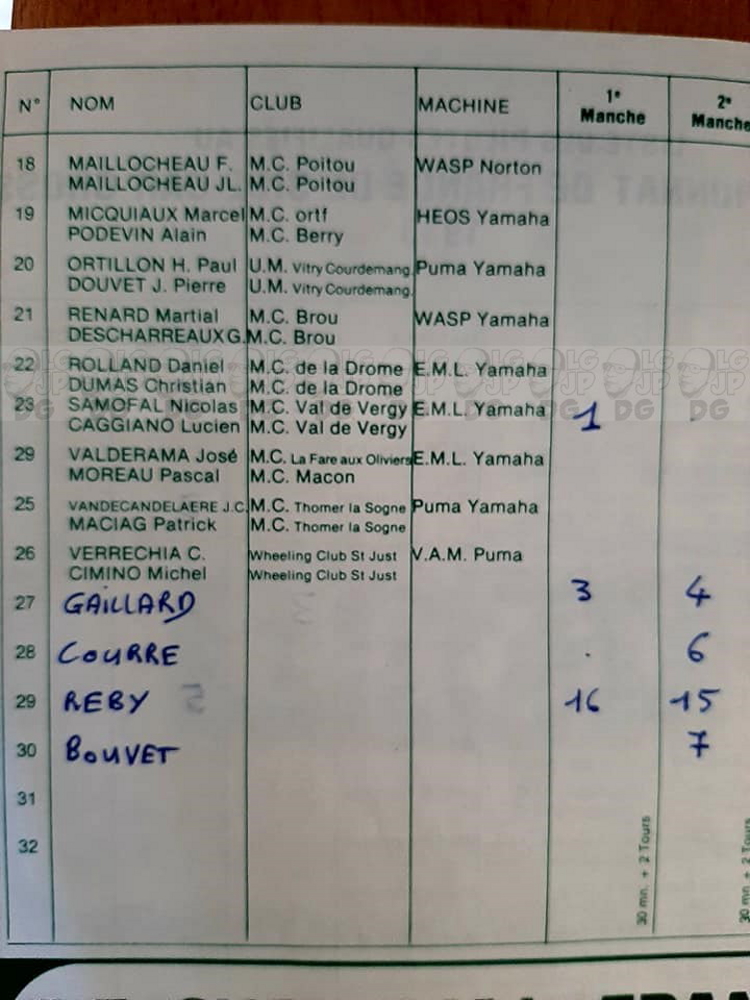 N° NOM CLUB MACHINE 1e Manche 2e Manche
18 MAILLOCHEAU F. M.C. Poitou WASP Norton
MAILLOCHEAU JL. M.C. Poitou
19 MICQUIAUX Marcel M.C. ortf HEOS Yamaha
PODEVIN Alain M.C. Berry
20 ORTILLON H. Paul U.M. Vitry Courdemang. Puma Yamaha
DOUVET J. Pierre U.M. Vitry Courdemang.
21 RENARD Martial M.C. Brou WASP Yamaha
DESCHARREAUX G. M.C. Brou
22 ROLLAND Daniel M.C. de la Drome E.M.L. Yamaha
DUMAS Christian M.C. de la Drome
23 SAMOFAL Nicolas M.C. Val de Vergy E.M.L. Yamaha 1
CAGGIANO Lucien M.C. Val de Vergy
29 VALDERAMA José M.C. La Fare aux Oliviers E.M.L. Yamaha
MOREAU Pascal M.C. Macon
25 VANDECANDELAERE J.C. M.C. Thomer la Sogne Puma Yamaha
MACIAG Patrick M.C. Thomer la Sogne
26 VERRECHIA C. Wheeling Club St Just V.A.M. Puma
CIMINO Michel Wheeling Club St Just
27 GAILLARD 3 4
28 COURRE . 6
29 REBY 16 15
30 BOUVET 7
31
32
30 mn. + 2 Tours
30 mn. + 2 Tours
LG JP DG